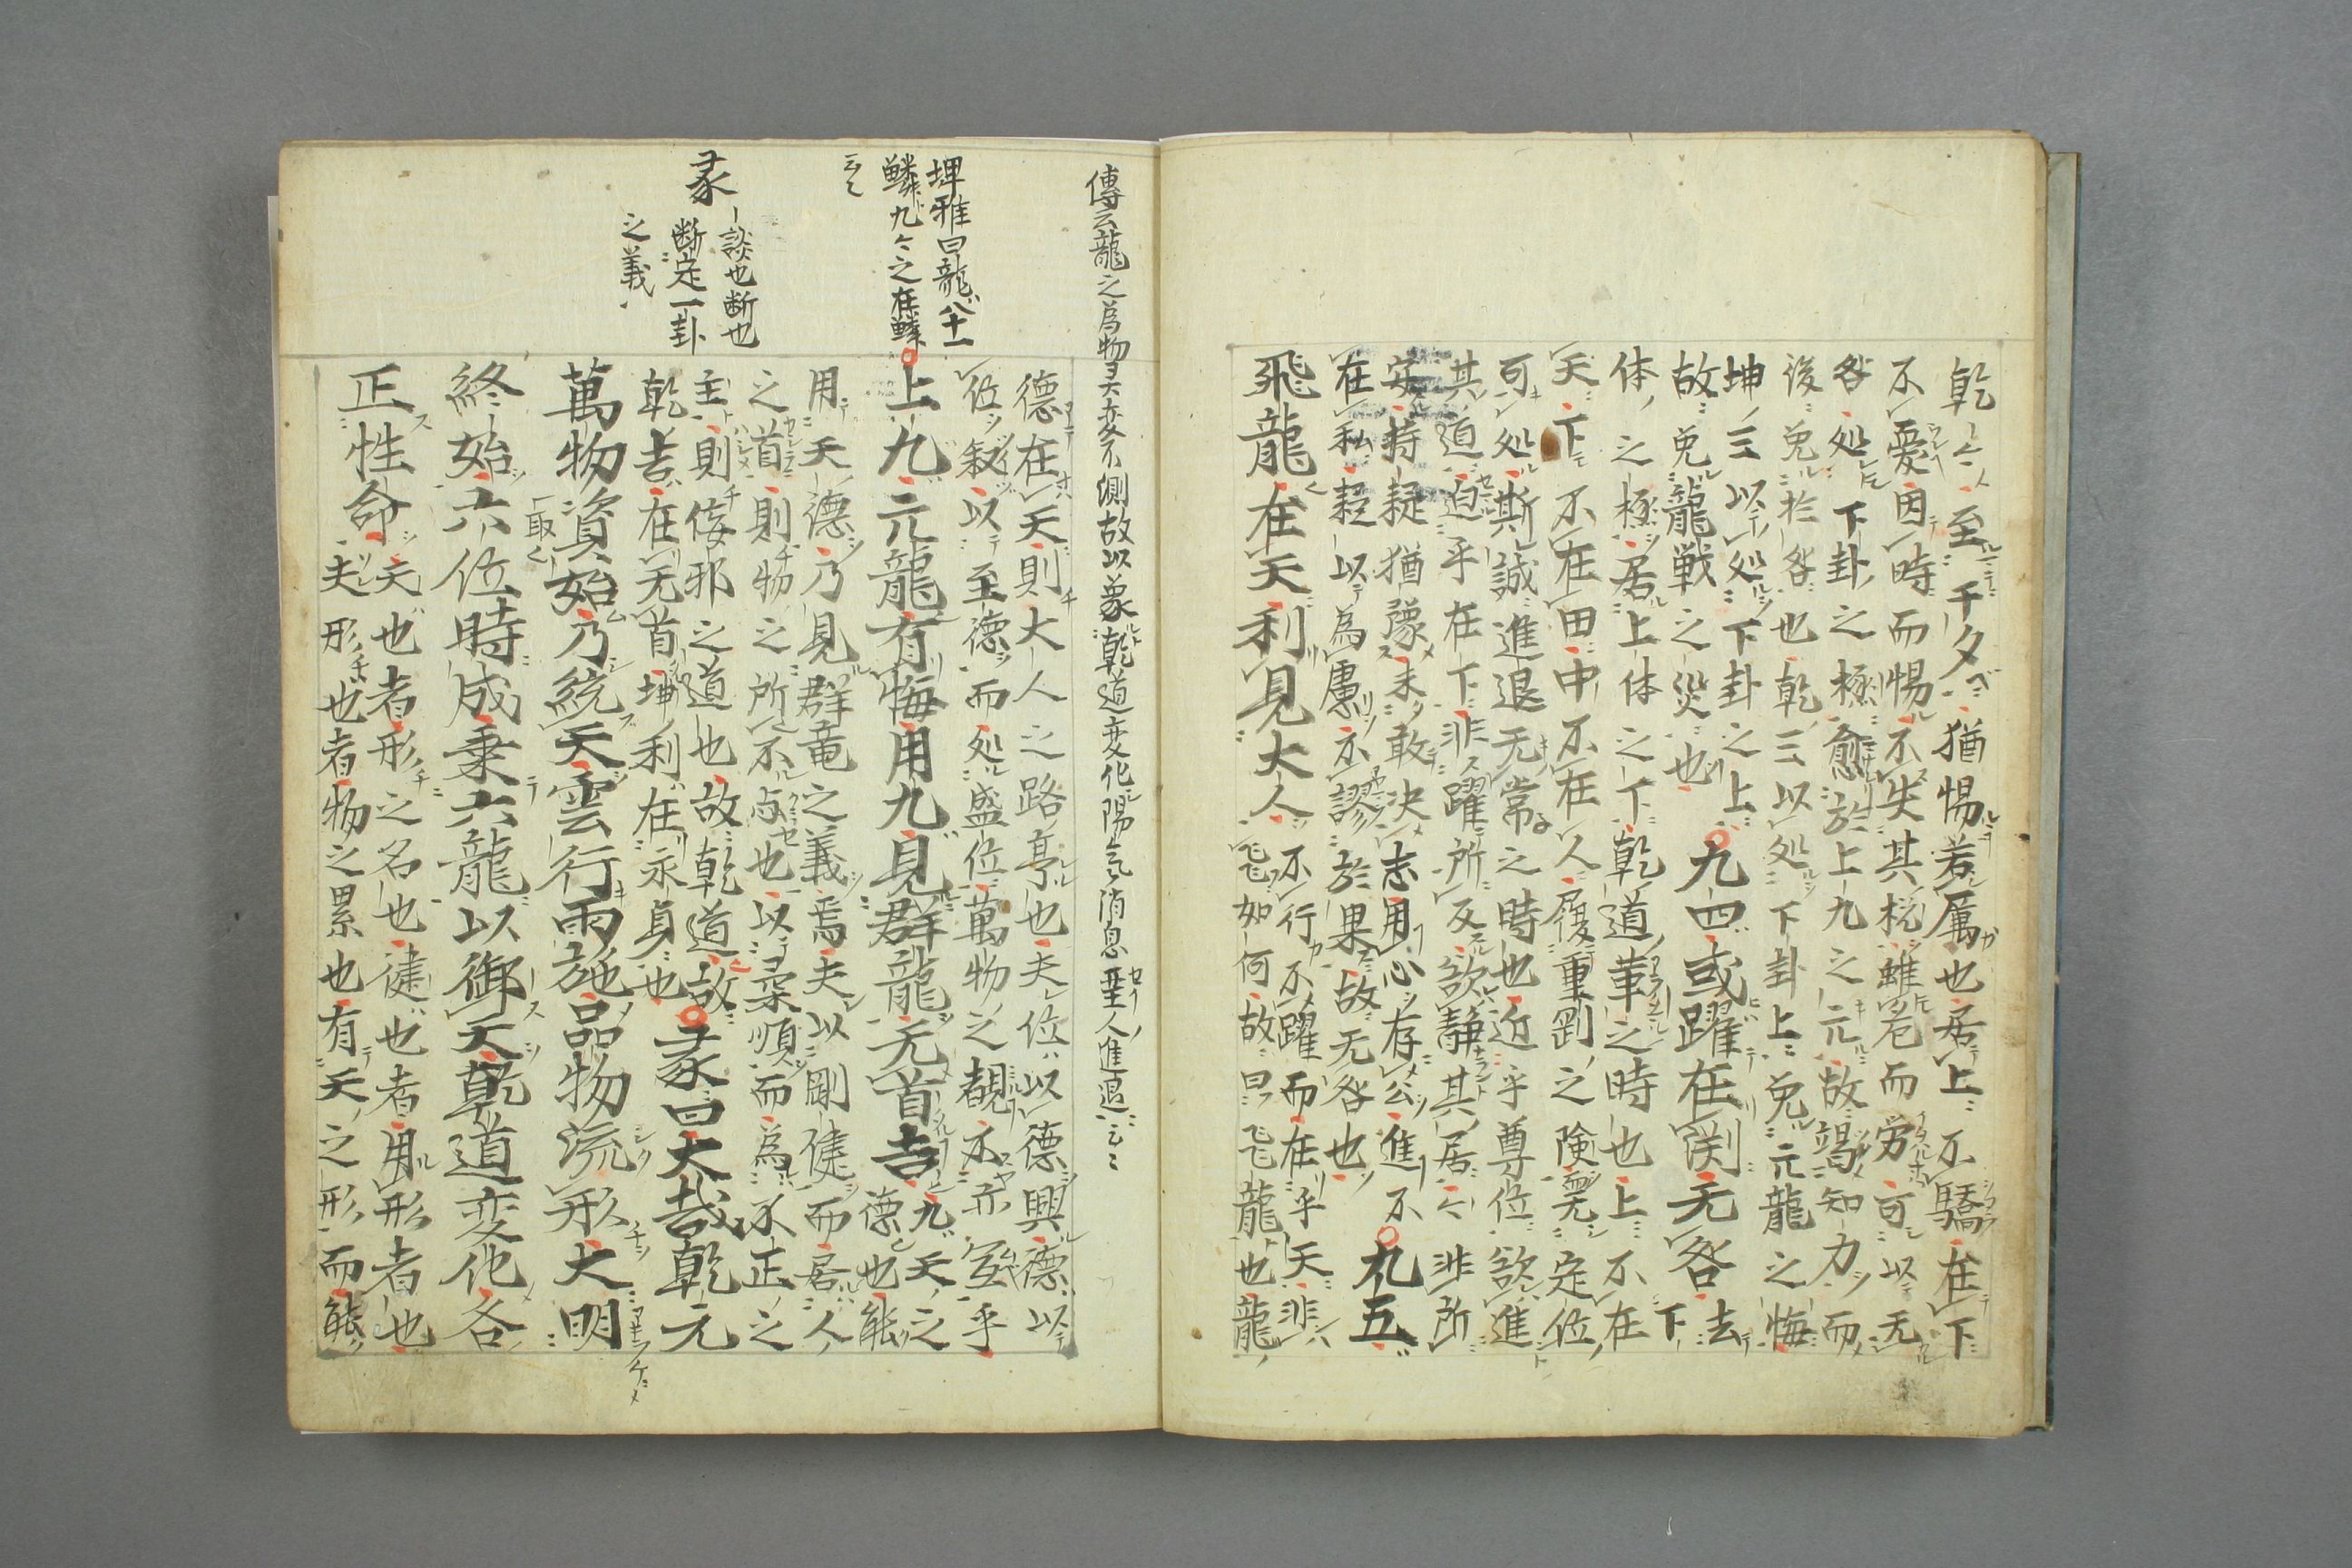 乾〻至于夕猶惕若厲也居上不驕在下
不憂因時而惕不失其机雖危而労可以无
咎処下卦之極愈於上九之亢故竭知力而
後免於咎也乾三以処下卦上免亢龍之悔
坤三以処下卦之上
故免龍戦之災也九四或躍在渕无咎去下
体之極居上体之下乾道革之時也上不在
天下不在田中不在人履重剛之険无定位
可処斯誠進退无常之時也近乎尊位欲進
其道迫乎在下非躍所及欲静其居〻非所
安持疑猶豫未敢决志用心存公進不
在私疑以為慮不謬於果故无咎也九五
飛龍在天利見大人不行不躍而在乎天非
飛如何故曰飛龍也龍
傳云龍之為物灵変不測故以象乾道変化陽気消息聖人進退云〻
德在天則大人之路亨也夫位以德興德以
位敘以至德而処盛位萬物之覩不亦宜乎
上九亢龍有悔用九見群龍无首吉九天之德也能
用天德乃見群竜之義焉夫以剛健而居人
之首則物之所不与也以柔順而為不正之
主則佞邪之道也故乾
吉在无首坤利在永貞也彖曰大哉乾元
萬物資始乃統天雲行雨施品物流形大明
終始六位時成乗六龍以御天乾道変化各
正性命天也者形之名也健也者用形者也
夫形也者物之累也有天之形而能
埤雅曰龍八十一
鱗九〻之在鱗
云〻
彖
談也断也
断定一卦
之義